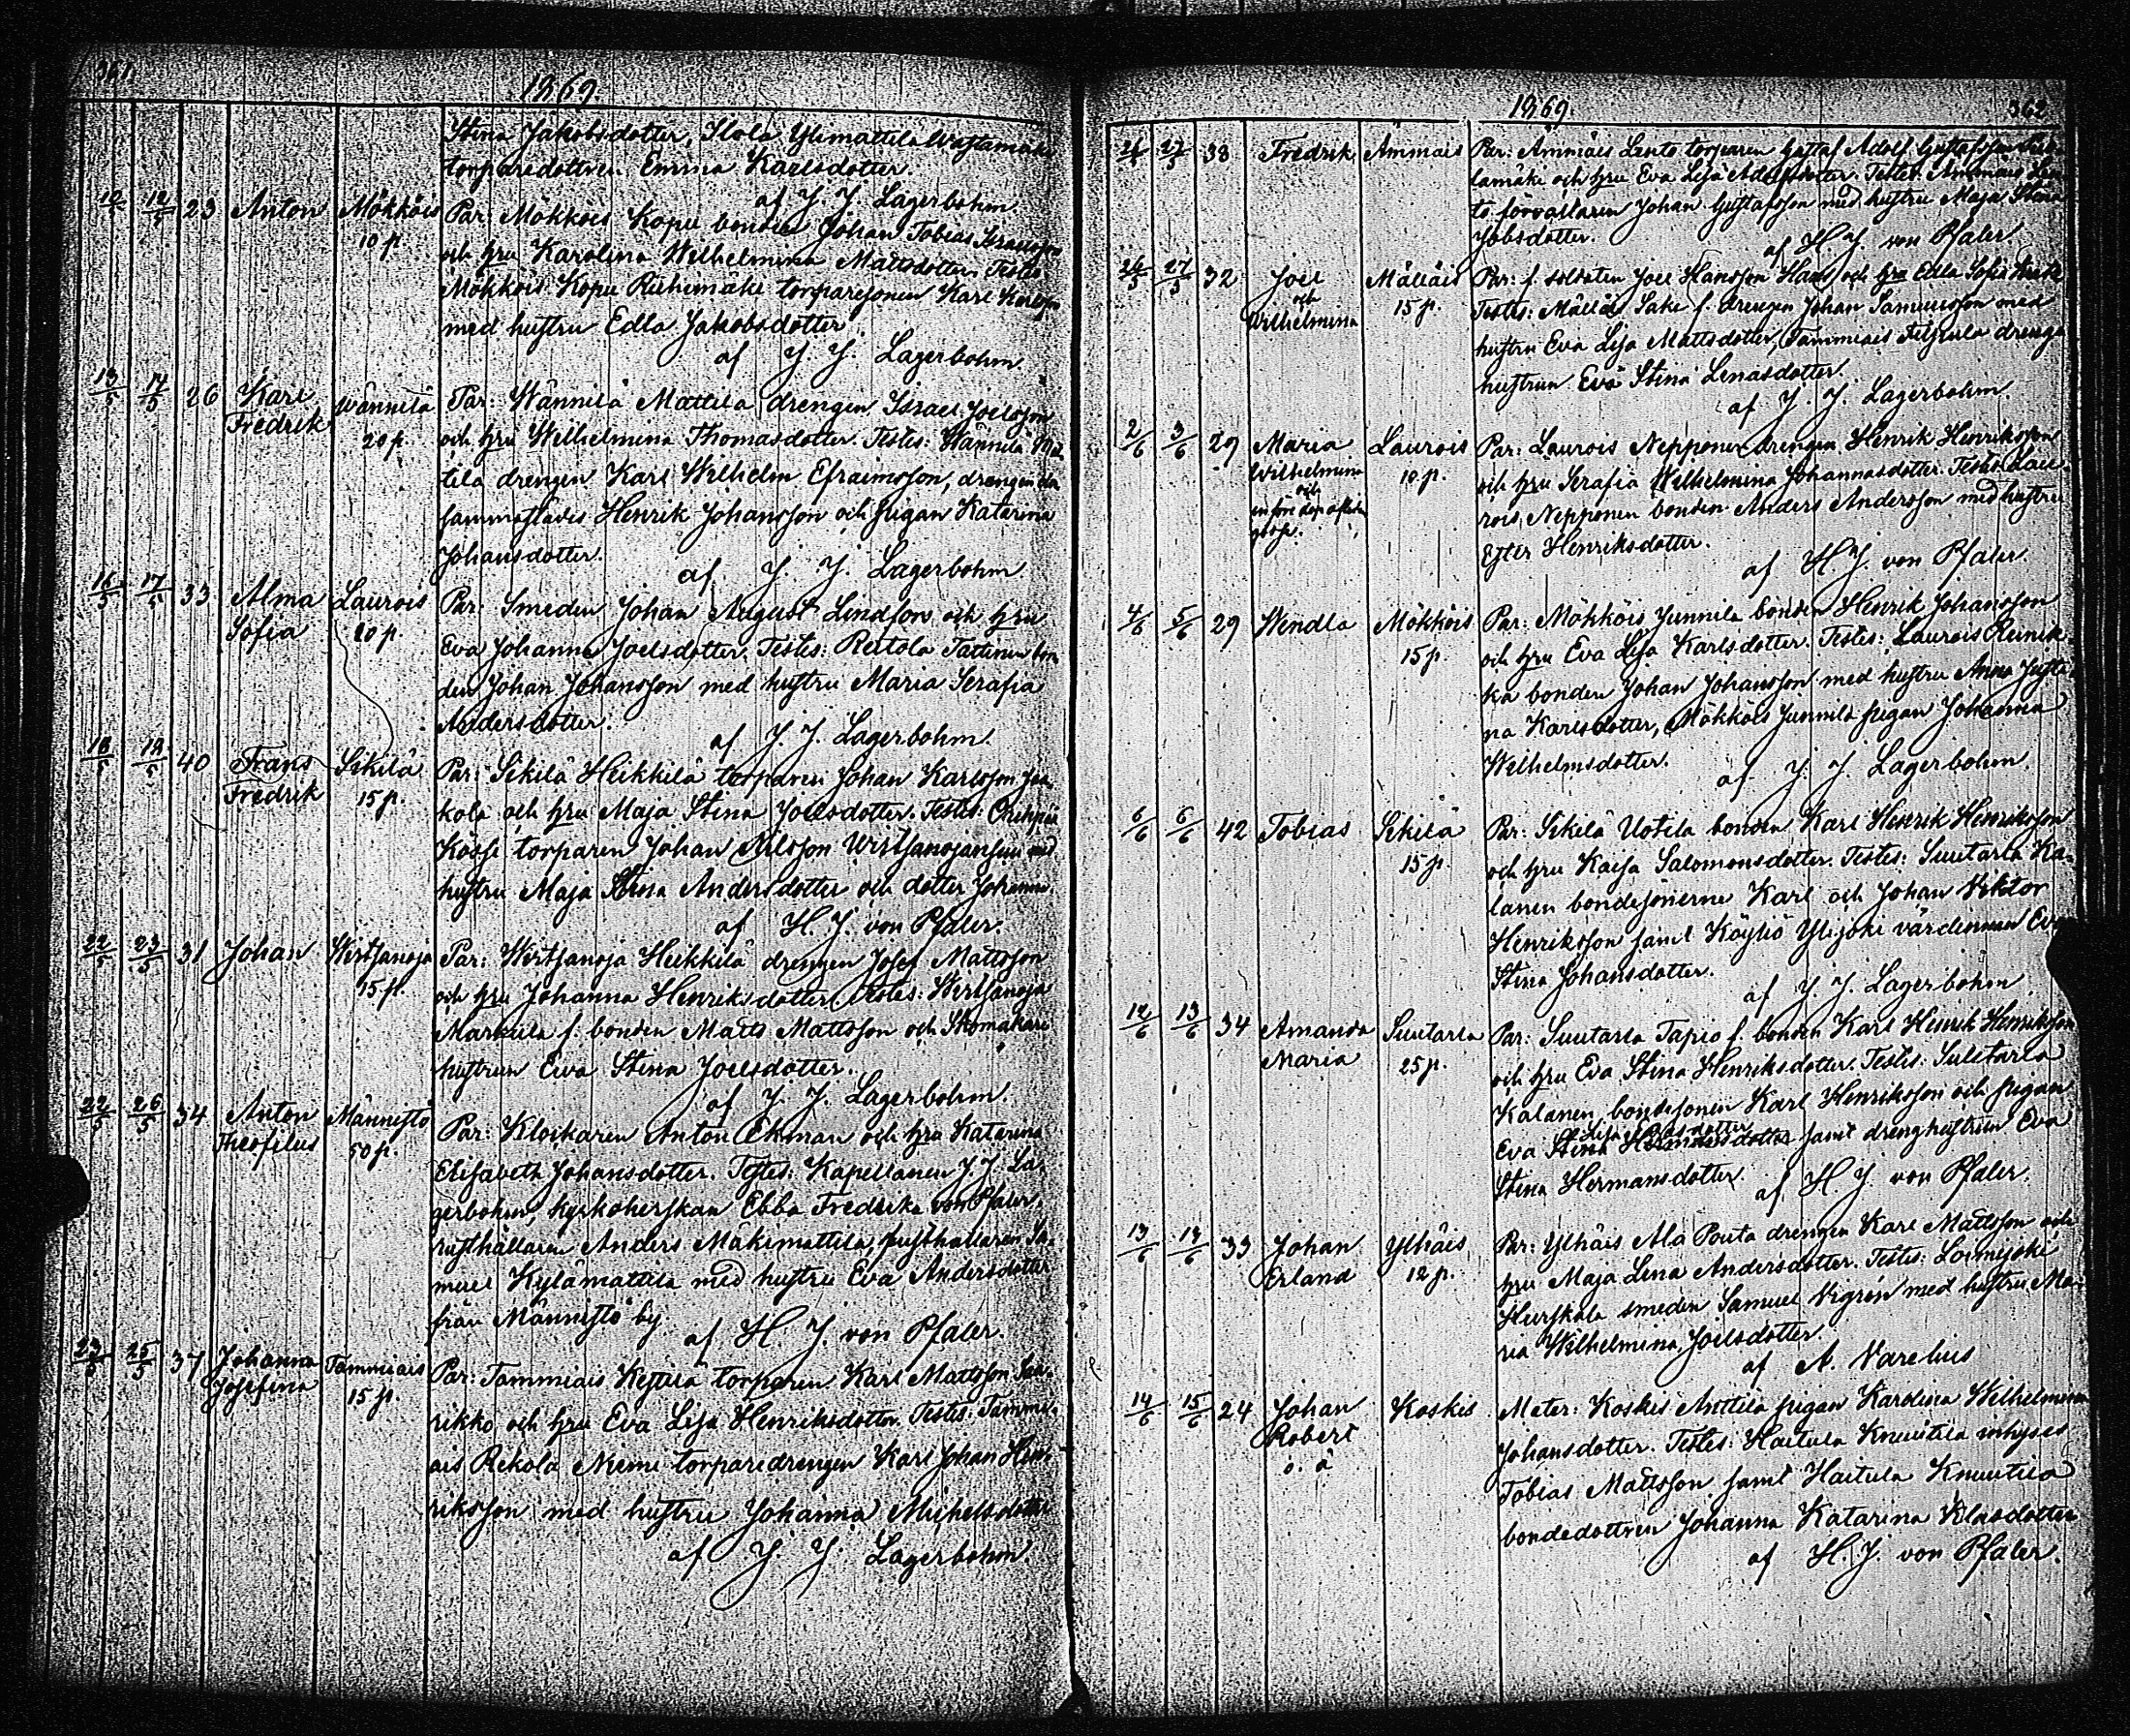 361.
1869.
Stina Jakobsdotter, Slola Ylimattila
torparedottren Emma Karlsdotter.
af J. J. Lagerbohm.
12/5 12/5 23 Anton Mökköis 10 p. Par: Mökköis Kopu bonden Johan Tobias
och hru Karolina Wilhelmina Mattsdotter. Testes:
Mökköis Kopu Riihimäki torparesonen Karl
med hustru Edla Jakobsdotter.
af J. J. Lagerbohm.
13/5 17/5 26 Karl Fredrik Wännilä 20 p. Par: Wännilä Mattila drengen Israel Joelsson
och hru Wilhelmina Thomasdotter. Testes: Wännilä Mat-
tila drengen Karl Wilhelm Efraimsson, drengen
sammastädes Henrik Johansson och pigan Katarina
Johansdotter.
af J. J. Lagerbohm
16/5 17/5 33 Alma Sofia Laurois 20 p. Par: Smeden Johan August Lindfors och hru
Eva Johanna Joelsdotter. Testes: Reitola Tattinen bon-
den Johan Johansson med hustru Maria Serafia
Andersdotter.
af J. J. Lagerbohm.
18/5 19/5 40 Frans Fredrik Sikilä 15 p. Par: Sikilä Heikkilä torparen Johan Karlsson Jaa-
kola och hru Maja Stina Joelsdotter. Testes: Orihpää
Kössi torparen Johan Nilsson Wirtsanojansuu med
hustru Maja Stina Andersdotter och dotter Johanna.
af H. J. von Pfaler.
22/5 23/5 31 Johan Wirtsanoja 15 p. Par: Wirtsanoja Heikkilä drengen Josef Mattsson
och hru Johanna Henriksdotter. Testes: Wirtsanoja
Markula f. bonden Matts Mattsson och Skomakare
hustrun Eva Stina Joelsdotter.
af J. J. Lagerbohm.
22/5 26/5 34 Anton Theofilus Männistö 50 p. Par: Klockaren Anton Ekman och hru Katarina
Elisabeth Johansdotter. Testes: Kapellanen J. J. La-
gerbohm, kyrkoherskan Ebba Fredrika von Pfaler,
rusthållaren Anders Mäkimattila, rusthållaren Sa-
muel Kylämattila med hustru Eva Andersdotter
från Männistö by.
af H. J. von Pfaler.
23/5 25/5 37 Johanna Josefina Tammiais 15 p. Par: Tammiais Kestilä torparen Karl Mattsson Saa-
rikko och hru Eva Lisa Henriksdotter. Testes: Tammi-
ais Rekola Niemi torparedrengen Karl Johan Hen-
riksson med hustru Johanna Michelsdotter
af J. J. Lagerbohm.
1869.
362
27/5 38 Fredrik Ammäis Par: Ammäis Lento torparen Gustaf Adolf Gustafsson
lamäki och hru Eva Lisa Adolfsdotter. Testes: Ammäis Len-
to förvaltaren Johan Gustafsson med hustru Maja Stina
Jobsdotter.
af H. J. von Pfaler.
26/5 27/5 32 Joel och Wilhelmina Mälläis 15 p. Par: f. soldaten Joel Hansson och hru Edla Sofia
Testes: Mälläis Sake f. drengen Johan Samuelsson med
hustru Eva Lisa Mattsdotter, Tammiais drengs
hustrun Eva Stina Lenasdotter.
af J. J. Lagerbohm.
2/6 3/6 29 Maria Wilhelmina och Laurois 10 p. Par: Laurois Nepponen drengen Henrik Henriksson
och hru Serafia Wilhelmina Johannasdotter. Testes: Lau-
rois Nepponen bonden Anders Andersson med hustru
Ester Henriksdotter.
af H. J. von Pfaler.
4/6 5/6 29 Wendla Mökköis 15 p. Par: Mökköis Junnila bonden Henrik Johansson
och hru Eva Lisa Karlsdotter. Testes: Laurois Reinik-
ka bonden Johan Johansson med hustru Anna Justi-
na Karlsdotter, Mökköis Junnila pigan Johanna
Wilhelmsdotter.
af J. J. Lagerbohm.
6/6 6/6 42 Tobias Sikilä 15 p. Par: Sikilä Uotila bonden Karl Henrik Henriksson
och hru Kaisa Salomonsdotter. Testes: Suutarla Ka-
lanen bondesönerne Karl och Johan Viktor
Henriksson samt Köyliö Ylijoki värdinnan Eva
Stina Johansdotter.
af J. J. Lagerbohm
12/6 13/6 34 Amanda Maria Suutarla 25 p. Par: Suutarla Tapio f. bonden Karl Henrik Henriksson
och hru Eva Stina Henriksdotter. Testes: Suutarla
Kalanen bondesonen Karl Henriksson och pigan
Eva Stina samt drenghustrun Eva
Stina Hermansdotter.
af H. J. von Pfaler.
13/6 14/6 33 Johan Erland Ylhäis 12 p. Par: Ylhäis Ala Pouta drengen Karl Mattsson och
hru Maja Lena Andersdotter. Testes: Loimijoki
Hurskala smeden Samuel Vigrén med hustru Ma-
ria Wilhelmina Joelsdotter.
af A. Varelius
14/6 15/6 24 Johan Robert o. ä Koskis Mater: Koskis Anttila pigan Karolina Wilhelmina
Johansdotter. Testes: Haitula Knuutila inhyses
Tobias Mattsson samt Haitula Knuutila
bondedottren Johanna Katarina Klasdotter
af H. J. von Pfaler.